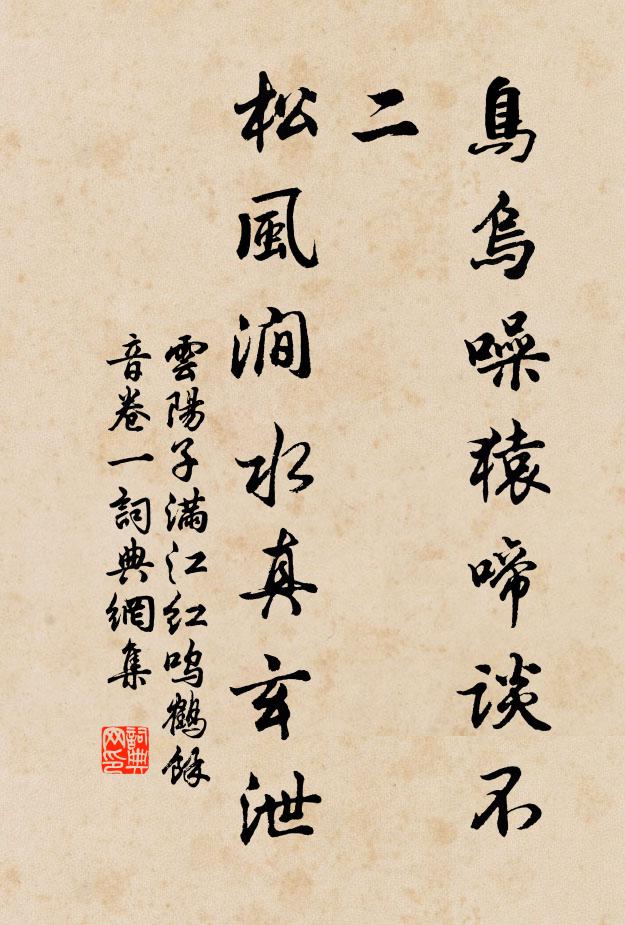 鳥烏噪猿啼談不
二
松風澗水真玄泄
雲陽子滿江紅鳴鶴餘
音卷一詞典網集
詞典网印